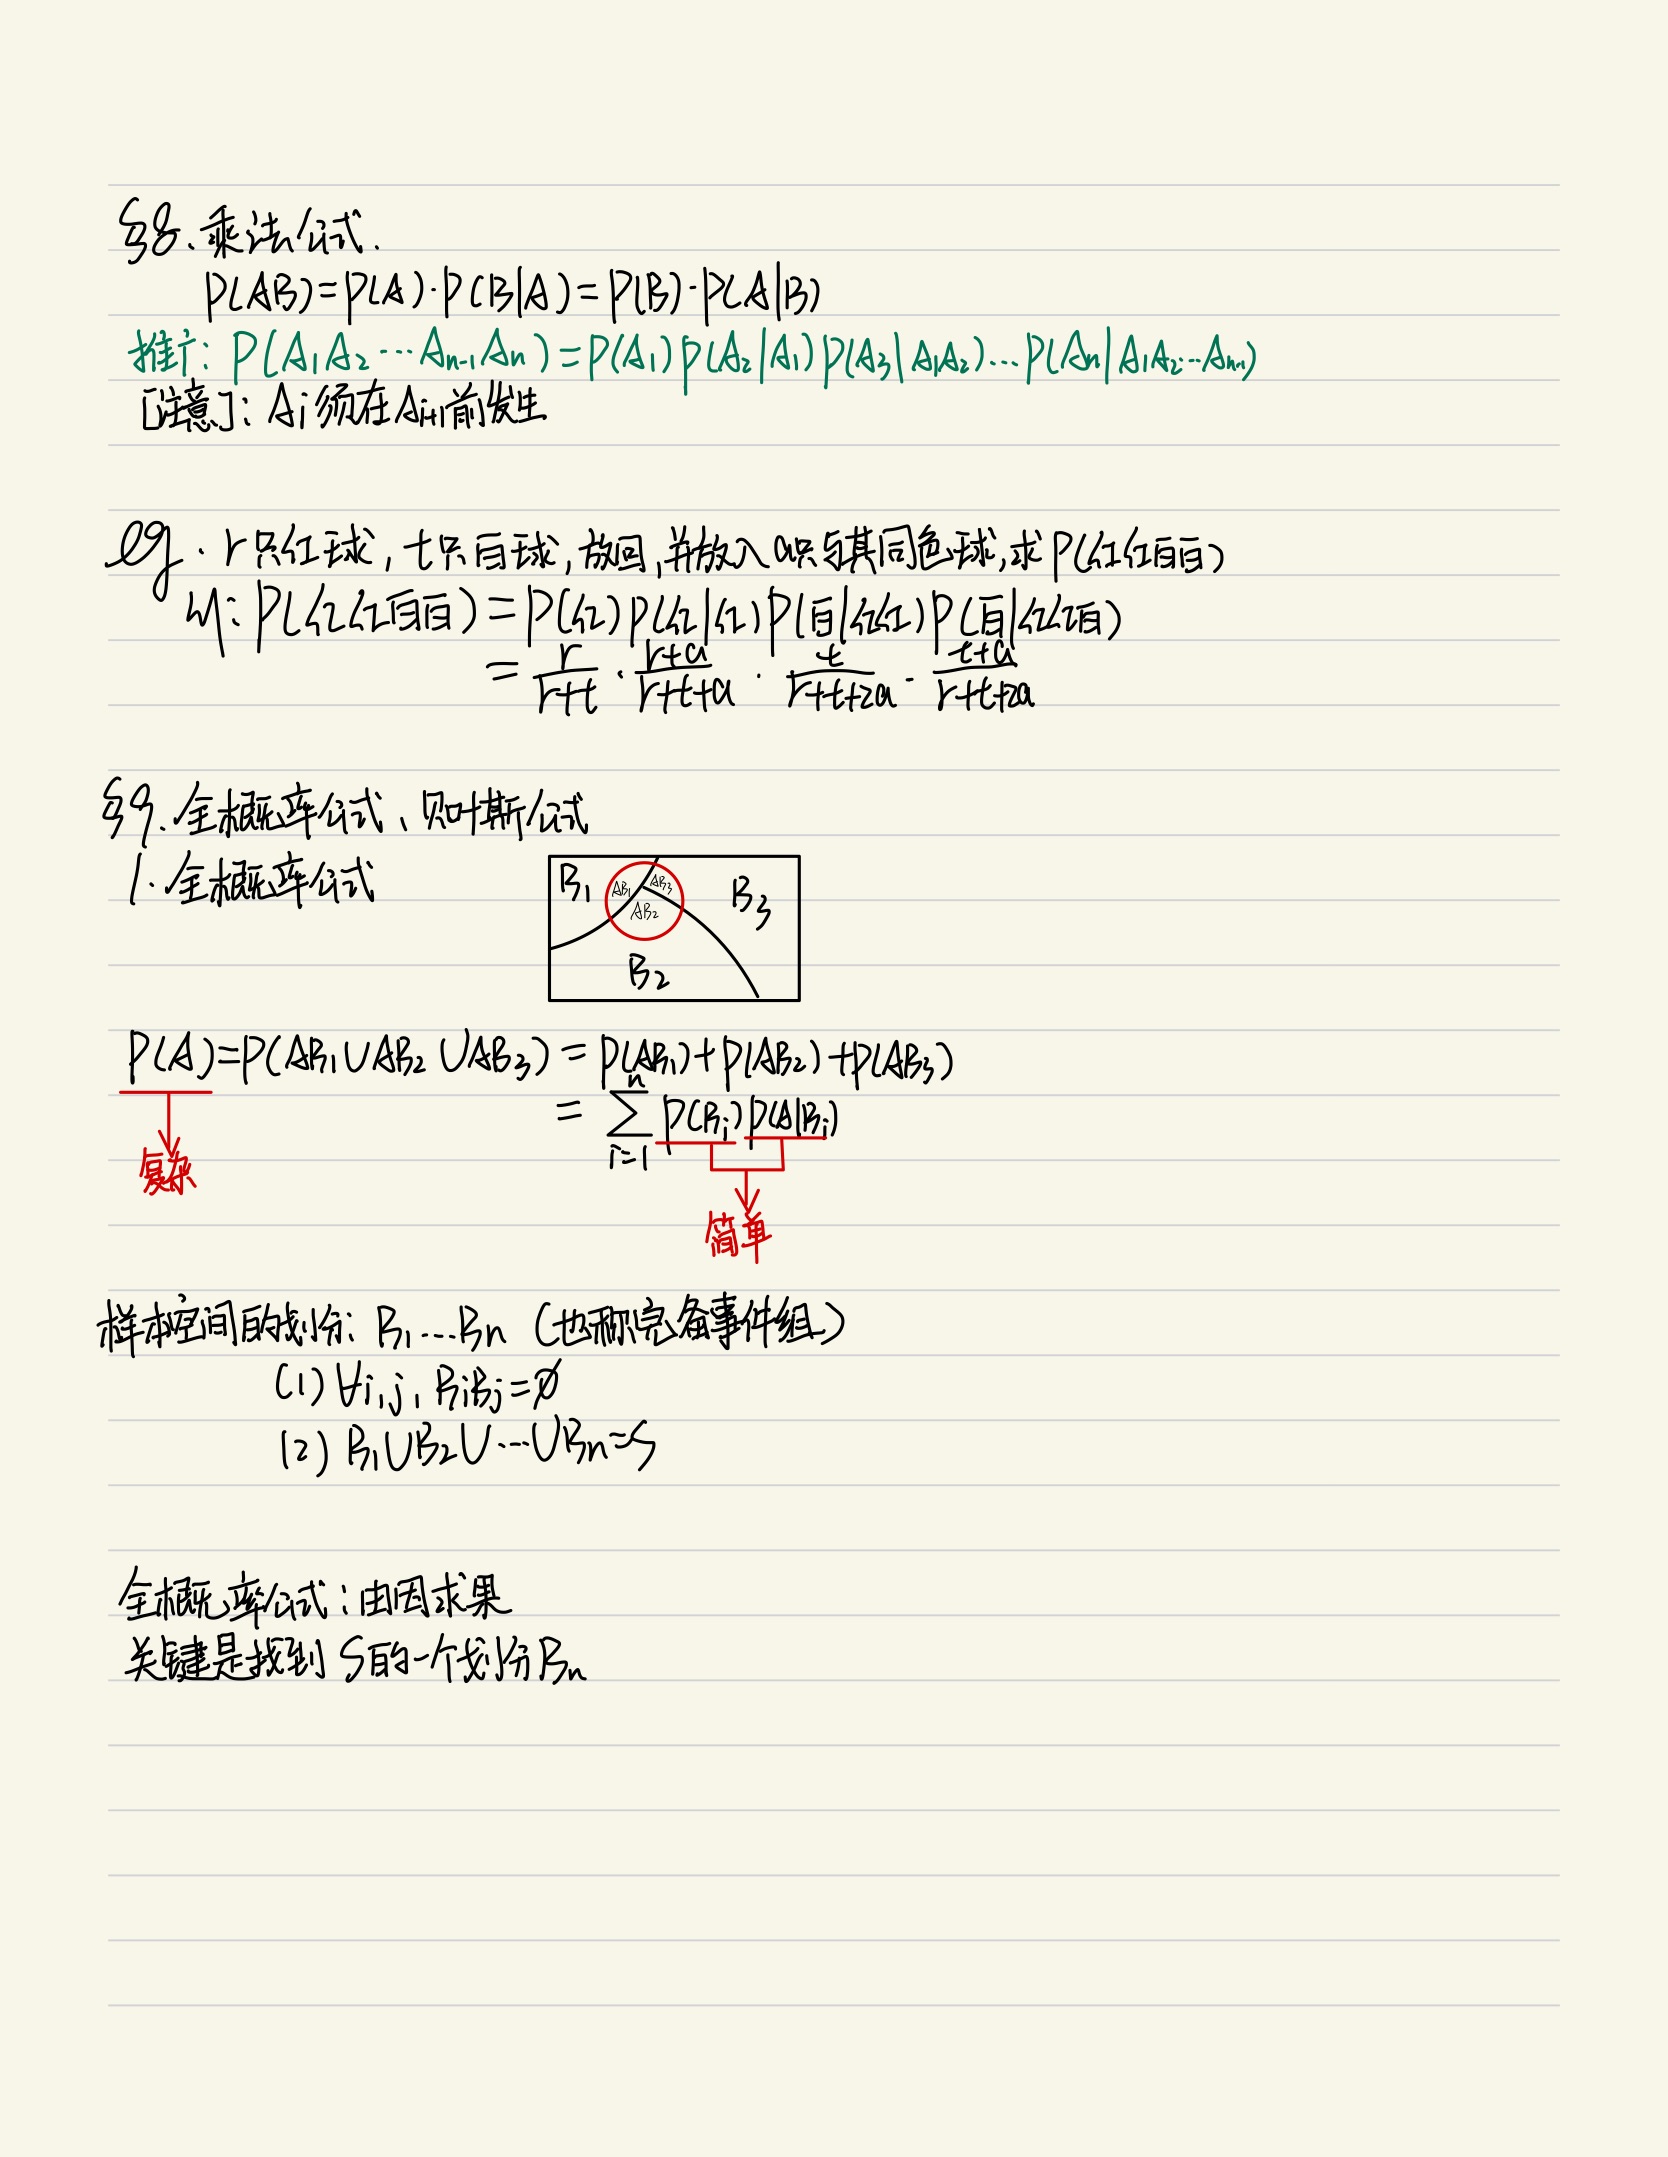 §8. 乘法公式.
P(AB)=P(A)·P(B|A)=P(B)·P(A|B)
推广: P(A₁A₂…Aₙ₋₁Aₙ)=P(A₁)P(A₂|A₁)P(A₃|A₁A₂)…P(Aₙ|A₁A₂…Aₙ₋₁)
[注意]: Ai须在Ai+1前发生
eg. r只红球, t只白球, 放回, 并放入a只与其同色球, 求P(红红白白)
P(红红白白)=P(红)P(红|红)P(白|红红)P(白|红红白)
= r/(r+t) · (r+a)/(r+t+a) · t/(r+t+2a) · (t+a)/(r+t+2a)
§9. 全概率公式、贝叶斯公式
1. 全概率公式
B₁ AB₁ AB₃ B₃
AB₂
B₂
P(A)=P(AB₁∪AB₂∪AB₃)=P(AB₁)+P(AB₂)+P(AB₃)
= ∑ⁿᵢ₌₁ P(Bᵢ)P(A|Bᵢ)
复杂
简单
样本空间的划分: B₁…Bn (也称完备事件组)
(1) ∀i,j, BiBj=∅
(2) B₁∪B₂∪…∪Bn=S
全概率公式: 由因求果
关键是找到S的一个划分Bn